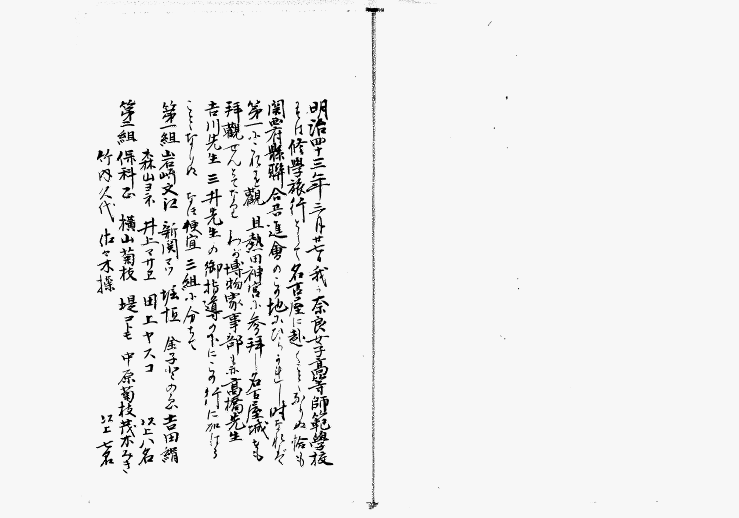 明治四十三年三月廿七日我が奈良女子高等師範學校
にては修學旅行として名古屋に赴くことゝなりぬ恰も
関西府縣聯合共進會のこの地にひらかれし時なれば
第一にこれを觀 且熱田神宮に參拜し名古屋城をも
拜觀せんとてなり わが博物家事部は高橋先生
吉川先生 三井先生の御指導の下にこの行に加はる
こととなりぬ なほ便宜 三組に分ちて
第一組 岩崎文江 新関マツ 堀恒 金子 吉田絹
森山ヨネ 井上マサヱ 田上ヤスコ 以上八名
第二組 保科正 横山菊枝 堤コトモ 中原菊枝 茂木みき
竹内久代 佐々木操 以上七名